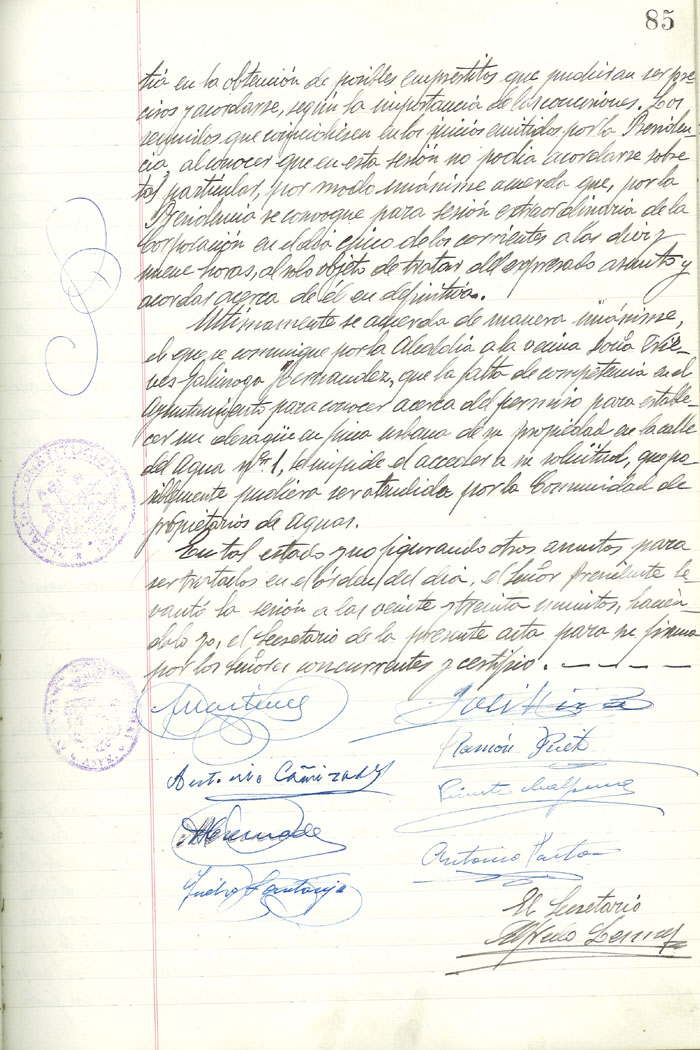 85
tiá en la obtención de posibles empréstitos que pudieran ser pre-
cisos y acordarse, según la importancia de las concesiones. Los
reunidos que coinciden en los juicios emitidos por la Presiden-
cia al conocer que en esta sesión no podía acordarse sobre
tal particular, por modo unánime acuerda que, por la
Presidencia se convoque para sesión extraordinaria de la
Corporación en el día cinco de los corrientes a las diez y
nueve horas, al solo objeto de tratar del expresado asunto y
acordar acerca de él en definitiva.
Ultimamente se acuerda de manera unánime,
el que se comunique por la Alcaldía a la vecina Doña
Galinoga Hernandez, que la falta de competencia en el
Ayuntamiento para conocer acerca del permiso para estable-
cer un desagüe en finca urbana de su propiedad en la calle
del Agua nº 1, le impide el acceder a su solicitud, que po-
siblemente pudiera ser atendida por la Comunidad de
propietarios de aguas.
En tal estado y no figurando otros asuntos para
ser tratados en el órden del día, el Señor Presidente le-
vantó la sesión a las veinte y treinta minutos, hacién-
dolo yo, el Secretario de la presente acta para su firma
por los Señores concurrentes y certifico. - - - -
Martinez
José
Ramón
Antonio Cañizares
Vicente
Antonio
Pedro Santonja
El Secretario
Alfredo